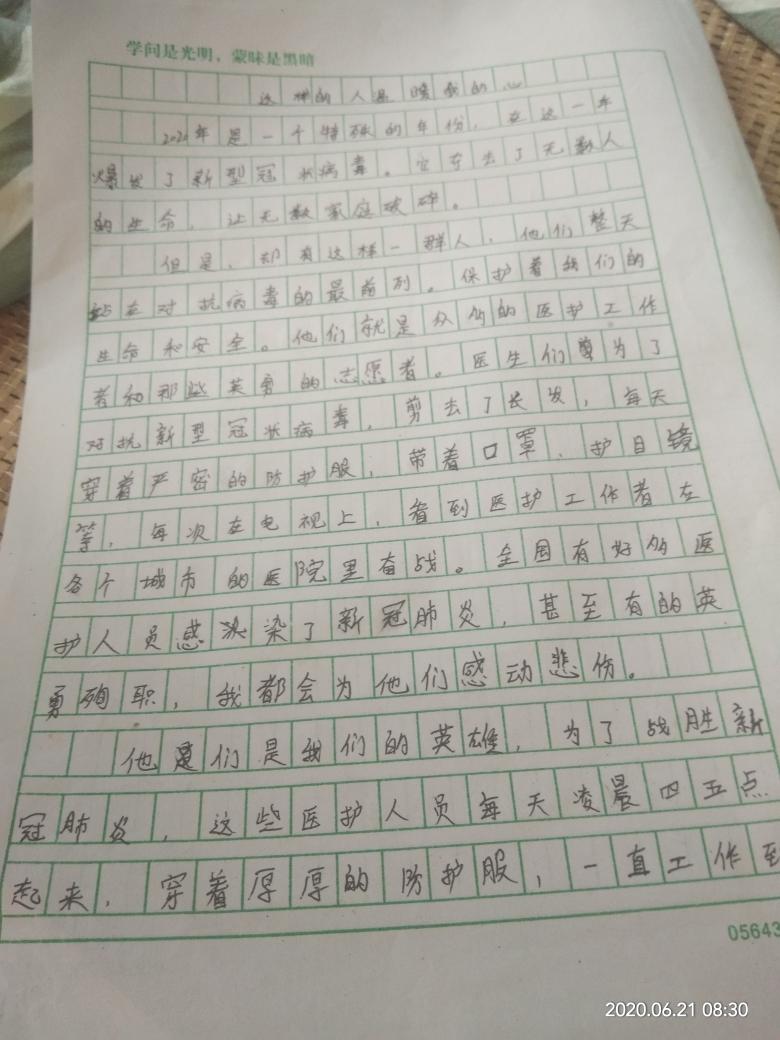 学问是光明，蒙昧是黑暗
这样的人温暖我的心
2020年是一个特殊的年份，在这一年
爆发了新型冠状病毒。它夺去了无数人
的生命，让无数家庭破碎。
但是，却有这样一群人，他们整天
站在对抗病毒的最前列。保护着我们的
生命和安全。他们就是众多的医护工作
者和那些英勇的志愿者。医生们为了
对抗新型冠状病毒，剪去了长发，每天
穿着严密的防护服，带着口罩、护目镜
等，每次在电视上，看到医护工作者在
各个城市的医院里奋战。全国有好多医
护人员感染了新冠肺炎，甚至有的英
勇殉职，我都会为他们感动悲伤。
他们是我们的英雄，为了战胜新
冠肺炎，这些医护人员每天凌晨四五点
起来，穿着厚厚的防护服，一直工作至
05643
2020.06.21 08:30